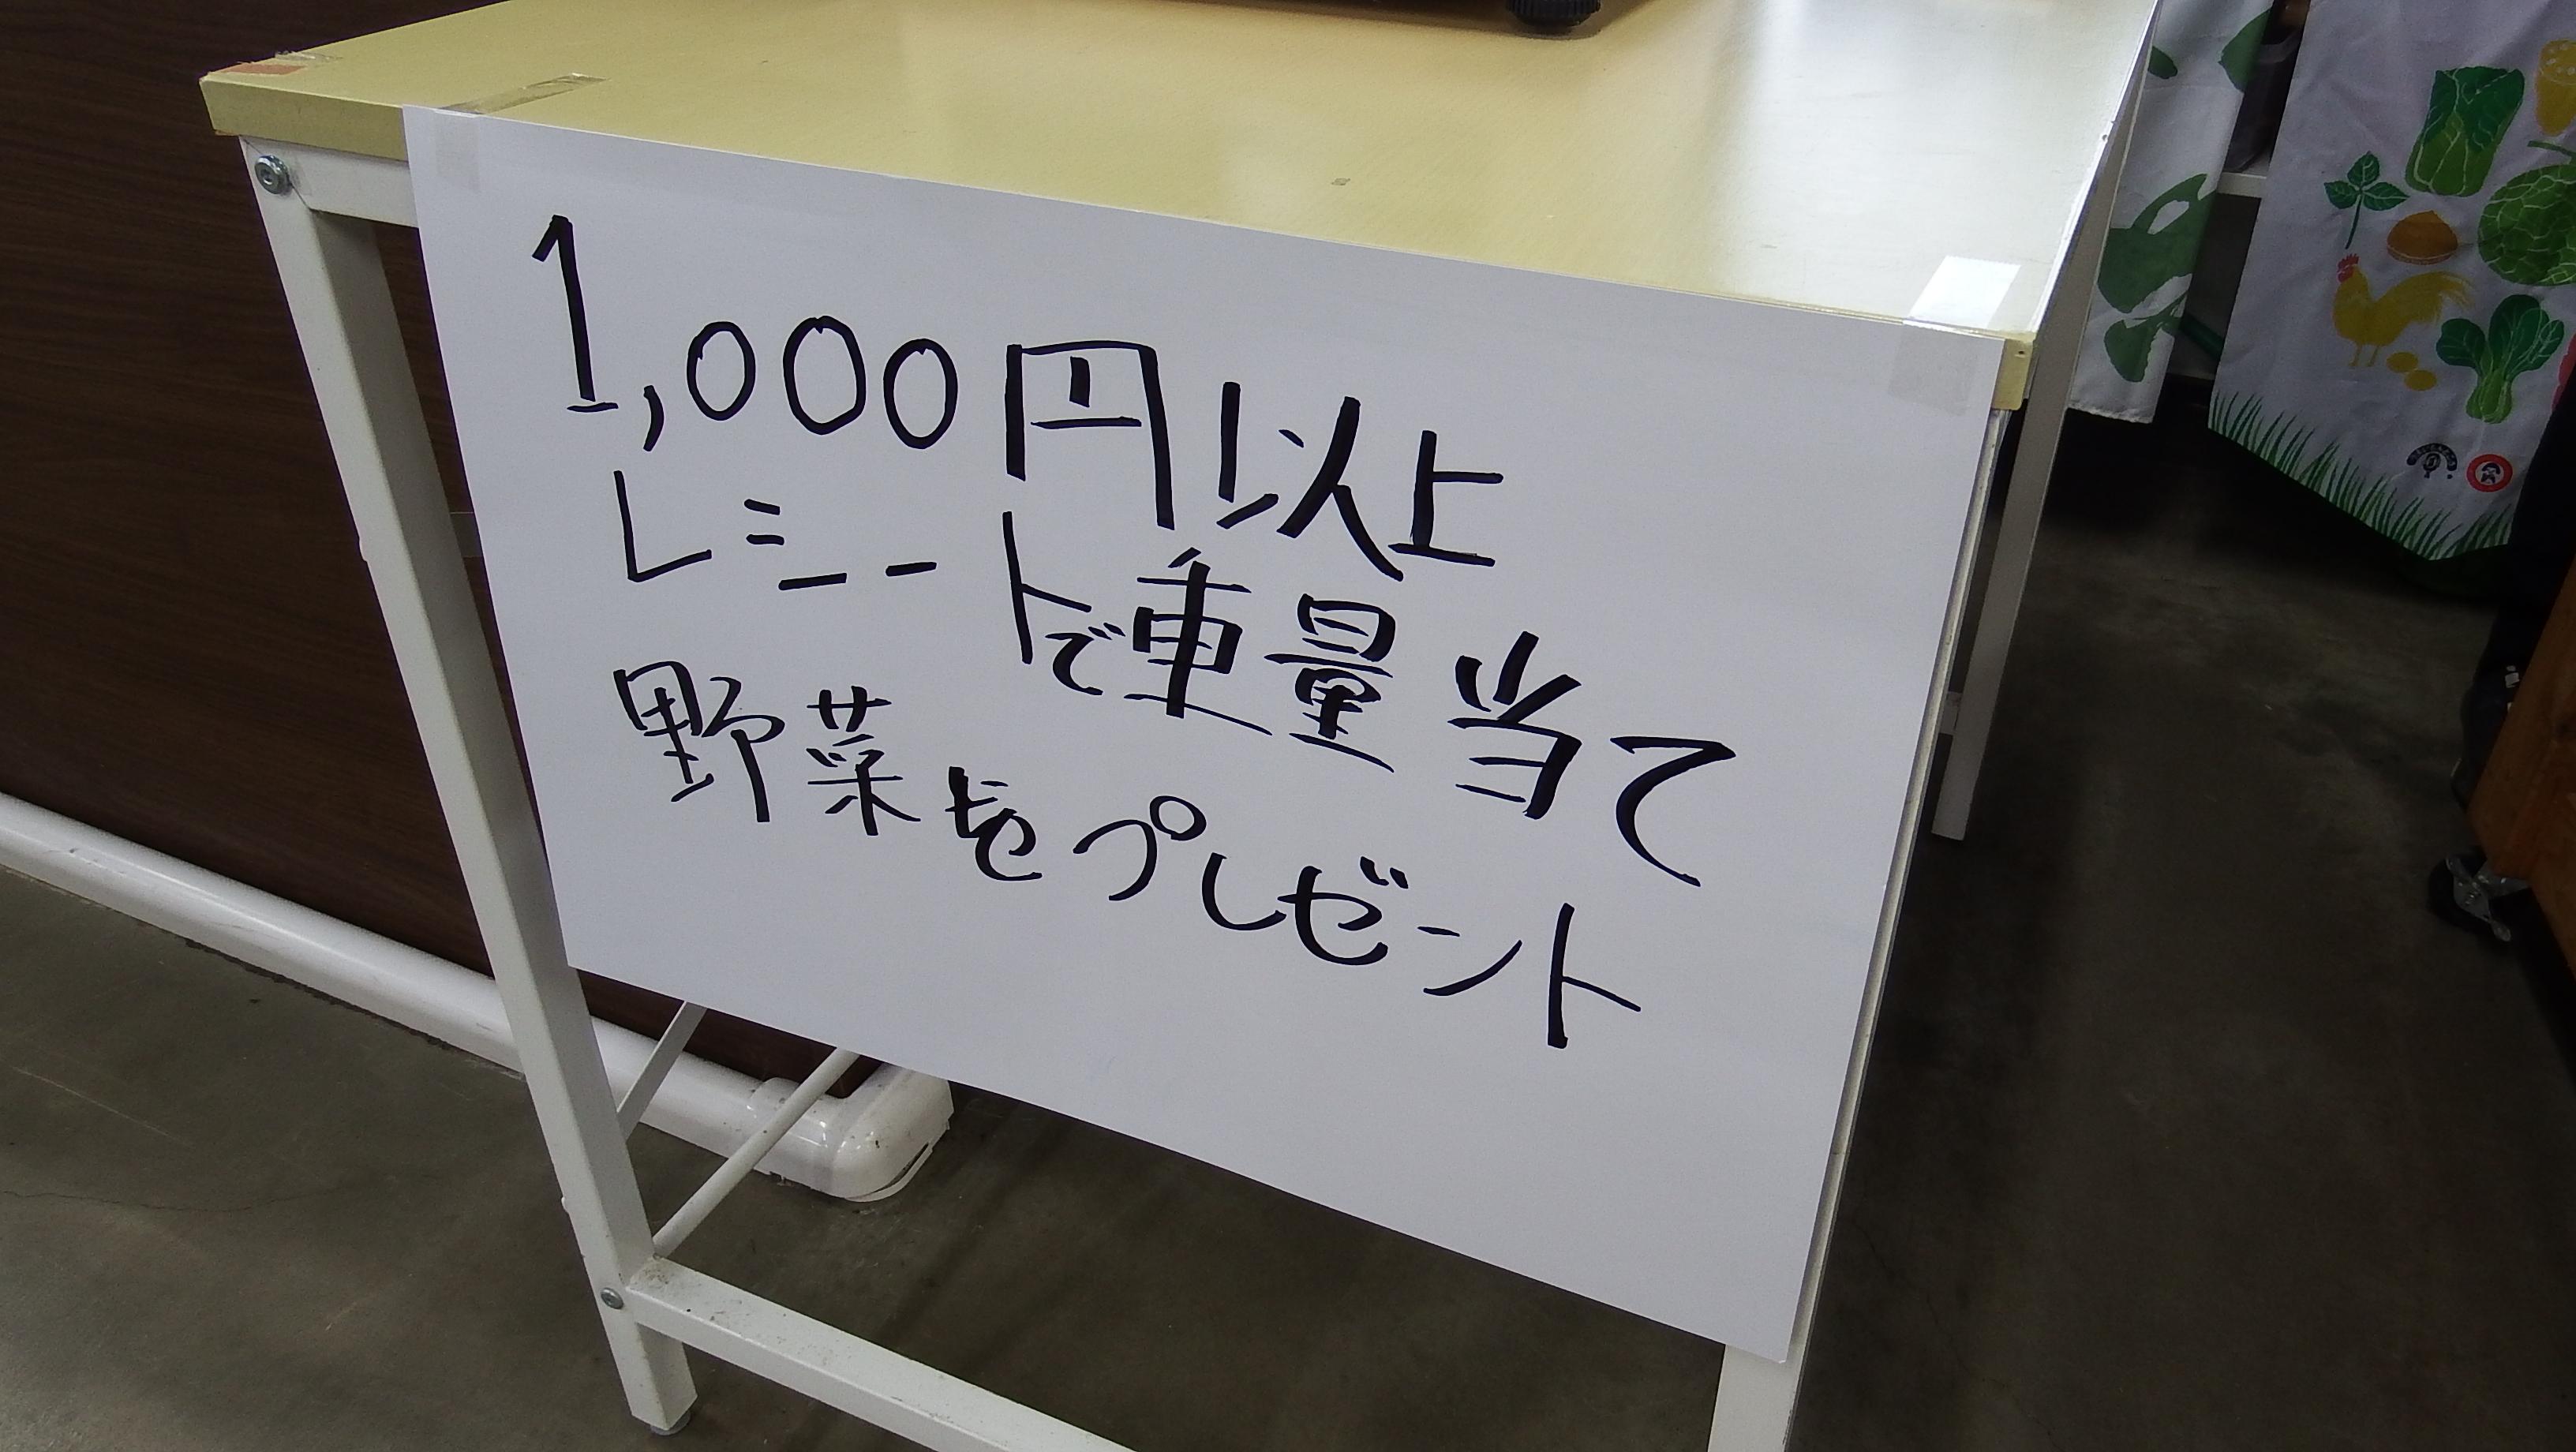 1,000円以上
レシートで重量当て
野菜をプレゼント